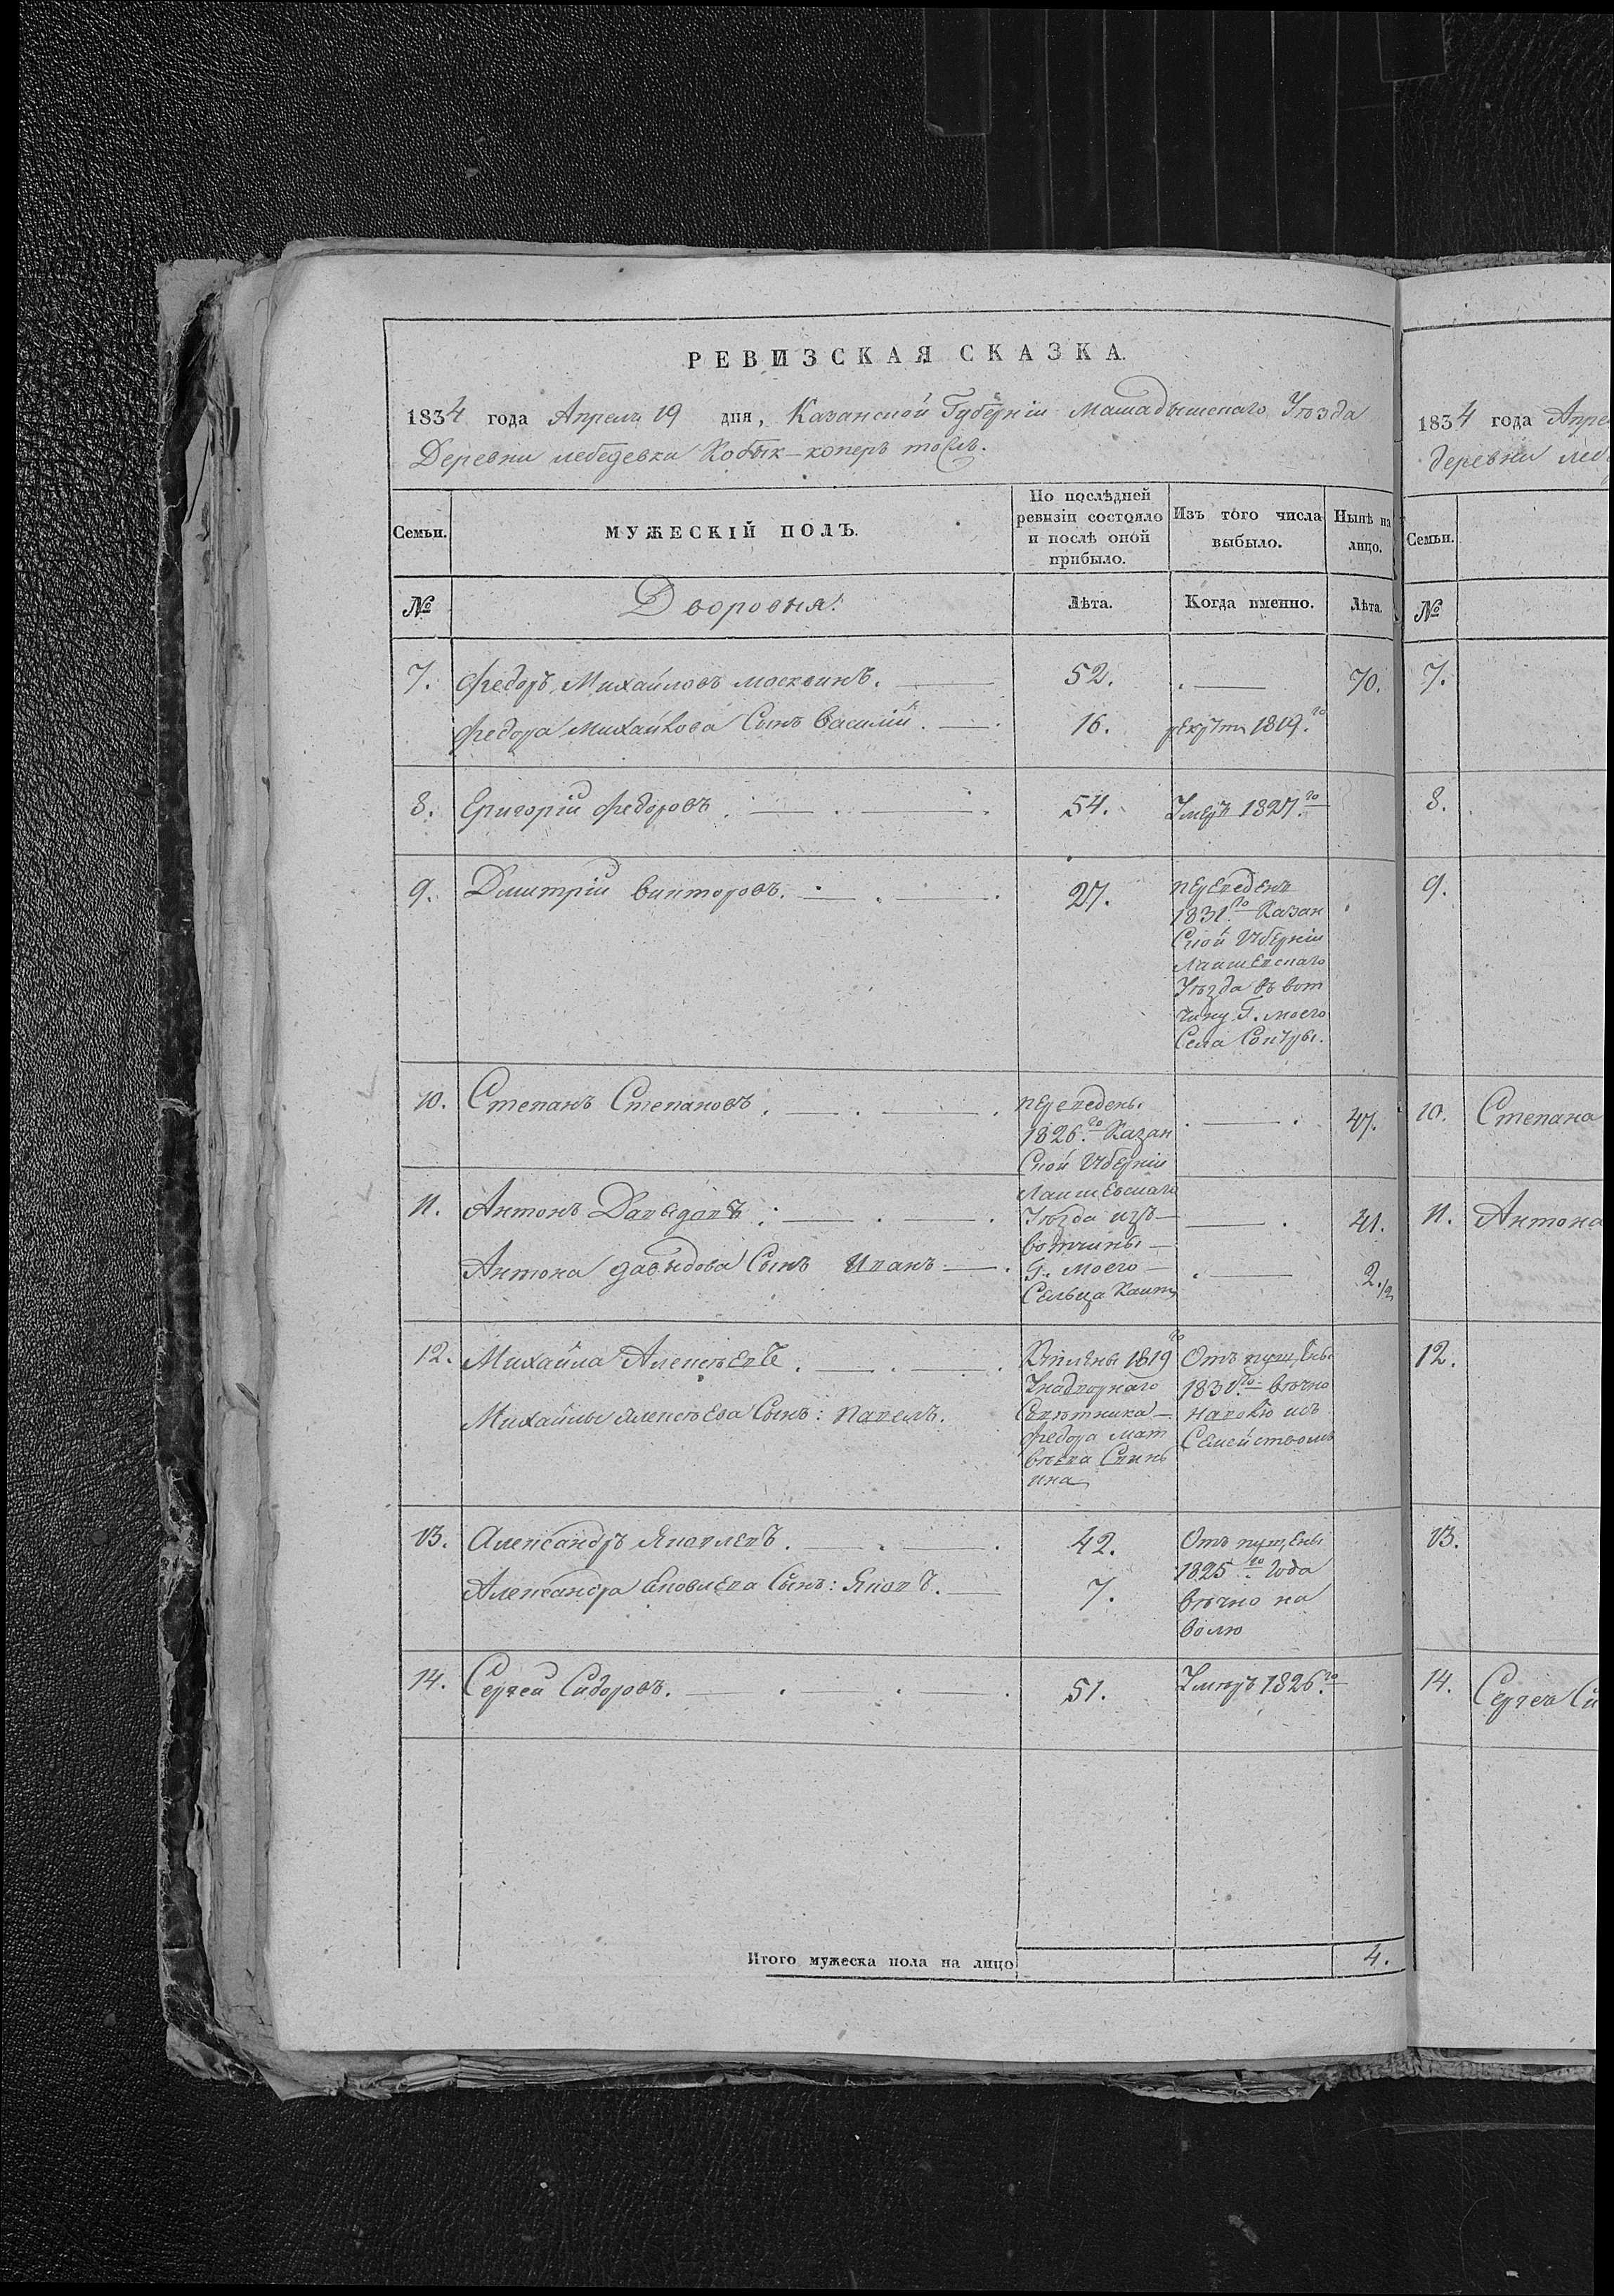 РЕВИЗСКАЯ СКАЗКА.
1834 года Апреля 19 дня, Казанской Губерніи Мамадышскаго Уѣзда
Деревни лебедевка Кобык-коперъ тожъ.
Семьи. МУЖЕСКІЙ ПОЛЪ. По послѣдней ревизіи состояло и послѣ оной прибыло. Изъ того числа выбыло. Нынѣ на лицо.
№ Дворовыя: Лѣта. Когда именно. Лѣта.
7. Федоръ Михайловъ москвинъ. 52. 70.
Федора Михайлова Сынъ Василий 16. рекрутъ 1819.го
8. Григорій Федоровъ 54. Умеръ 1827.го
9. Дмитрій викторовъ. 27. переведенъ
1831го Казан
Ской Губерніи
Лаишевскаго
Уѣзда въ вот
чину Г. моего
Села
10. Степанъ Степановъ. переведены 47.
1826.го Казан
Ской Губерніи
11. Антонъ Давыдовъ Лаишевскаго 41.
Уѣзда изъ
вотчины
Антона давыдова Сынъ Иванъ Г. моего 2.1/2
Сельца
12. Михайла Алексѣевъ. Куплены 1819го Отъ пущены
У надворнаго 1831.го вѣчно
Михайлы Алексѣева Сынъ: Павелъ. Совѣтника на волю съ
Федора мат Семействомъ
вѣева
13. Александръ Яковлевъ. 42. Отъ пущены
1825го года
Александра Яковлева Сынъ: Яковъ. 7. вѣчно на
волю
14. Сергей Сидоровъ. 51. Умеръ 1826.го
Итого мужеска пола на лицо 4.
1834 года
деревни
Семьи.
№
7.
8.
9.
10. Степана
11. Антона
12.
13.
14. Сергея